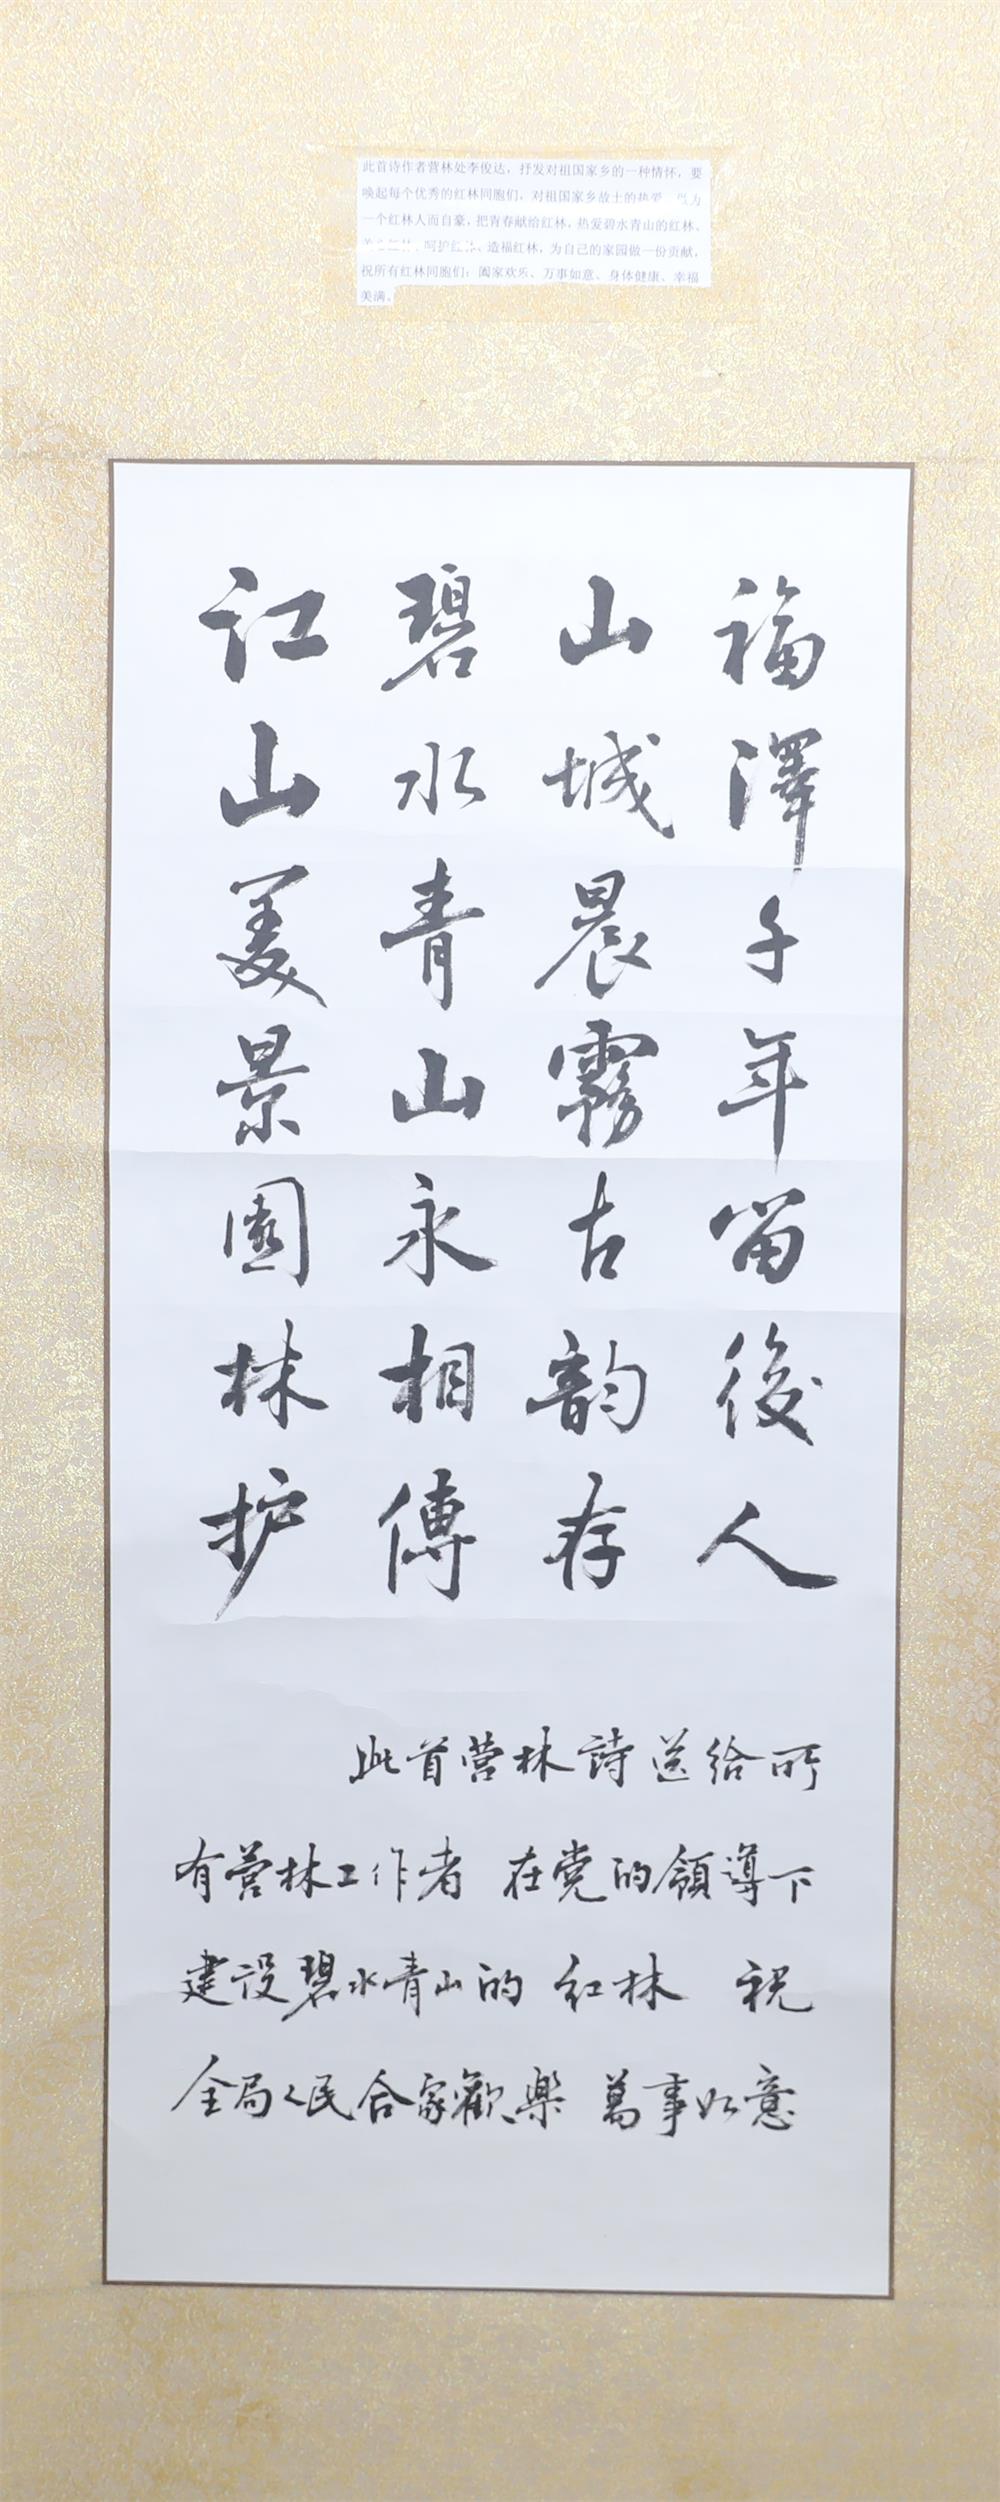 此首诗作者营林处李俊达，抒发对祖国家乡的一种情怀，要
唤起每个优秀的红林同胞们，对祖国家乡故土的热爱 为
一个红林人而自豪，把青春献给红林，热爱碧水青山的红林、
呵护红林、造福红林，为自己的家园做一份贡献，
祝所有红林同胞们：阖家欢乐、万事如意、身体健康、幸福
美满。
江山美景園林护
碧水青山永相傳
山城晨霧古韵存
福澤千年留後人
此首营林詩送给所
有营林工作者 在党的領導下
建设碧水青山的 红林 祝
全局人民合家歡樂 萬事如意